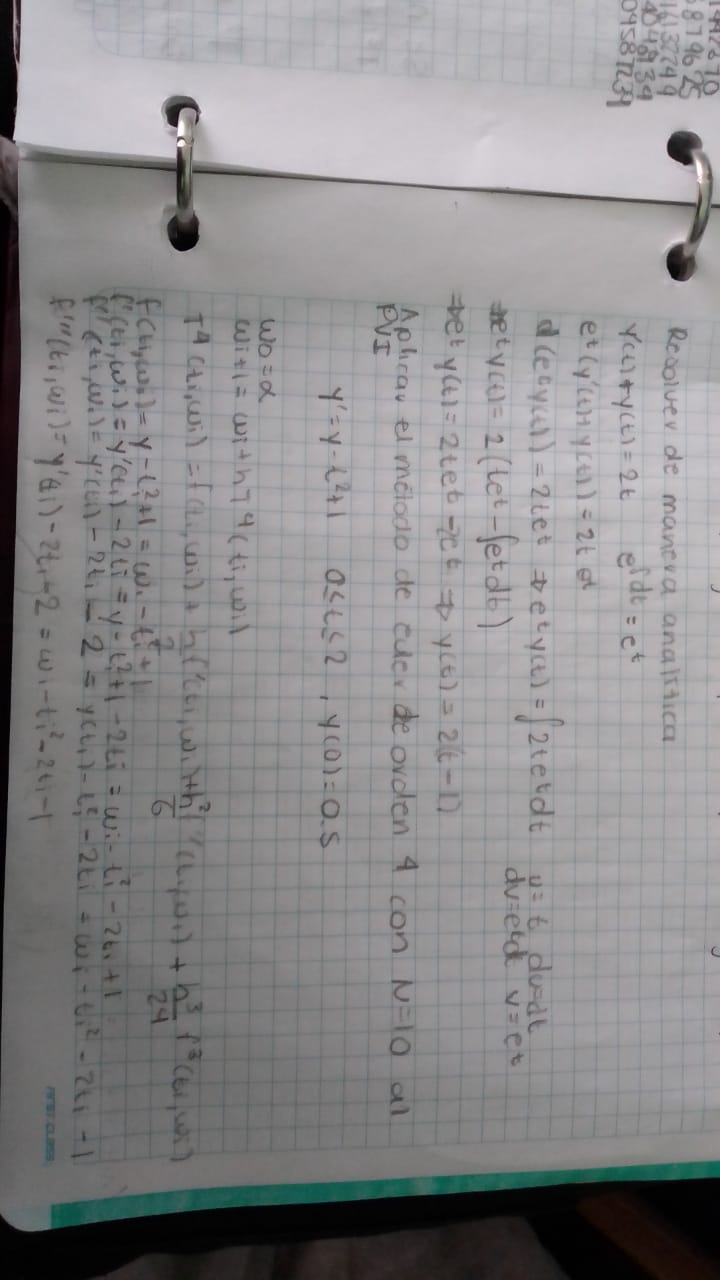 879625
16132749
Resolver de manera analitica
y'(t)+y(t)=2t e^∫dt = e^t
e^t(y'(t)+y(t))=2t e^t
d(e^t y(t))=2te^t ⇒ e^t y(t)=∫2te^t dt u=t du=dt
dv=e^t dt v=e^t
⇒e^t y(t)=2(te^t-∫e^t dt)
⇒e^t y(t)=2te^t-2e^t ⇒ y(t)=2(t-1)
Aplicar el método de euler de orden 4 con N=10 al
PVI
y'=y-t²+1 0≤t≤2, y(0)=0.5
w0=α
wi+1=wi+hT⁴(ti,wi)
T⁴(ti,wi)=f(ti,wi)+h/2 f'(ti,wi)+h²/6 f''(ti,wi)+h³/24 f³(ti,wi)
f(ti,wi)=y-ti²+1=wi-ti²+1
f'(ti,wi)=y'(ti)-2ti=y-ti²+1-2ti=wi-ti²-2ti+1
f''(ti,wi)=y'(ti)-2ti-2=y(ti)-ti²-2ti=wi-ti²-2ti-1
f'''(ti,wi)=y'(ti)-2ti-2=wi-ti²-2ti-1
FIRST CLASS